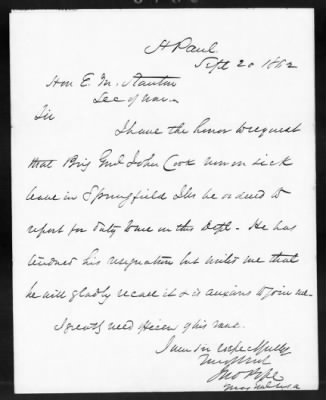 St Paul.
Sept 20 1862
Hon E. M. Stanton
Sec of War.
Sir
I have the honor to request
that Brig Genl John Cook now on sick
leave in Springfield Ills be ordered to
report for duty to me in this Dept. He has
tendered his resignation but writes me that
he will gladly recall it & is anxious to join me.
I greatly need officers of his rank.
I am sir respectfully
Jno Pope
Maj Genl